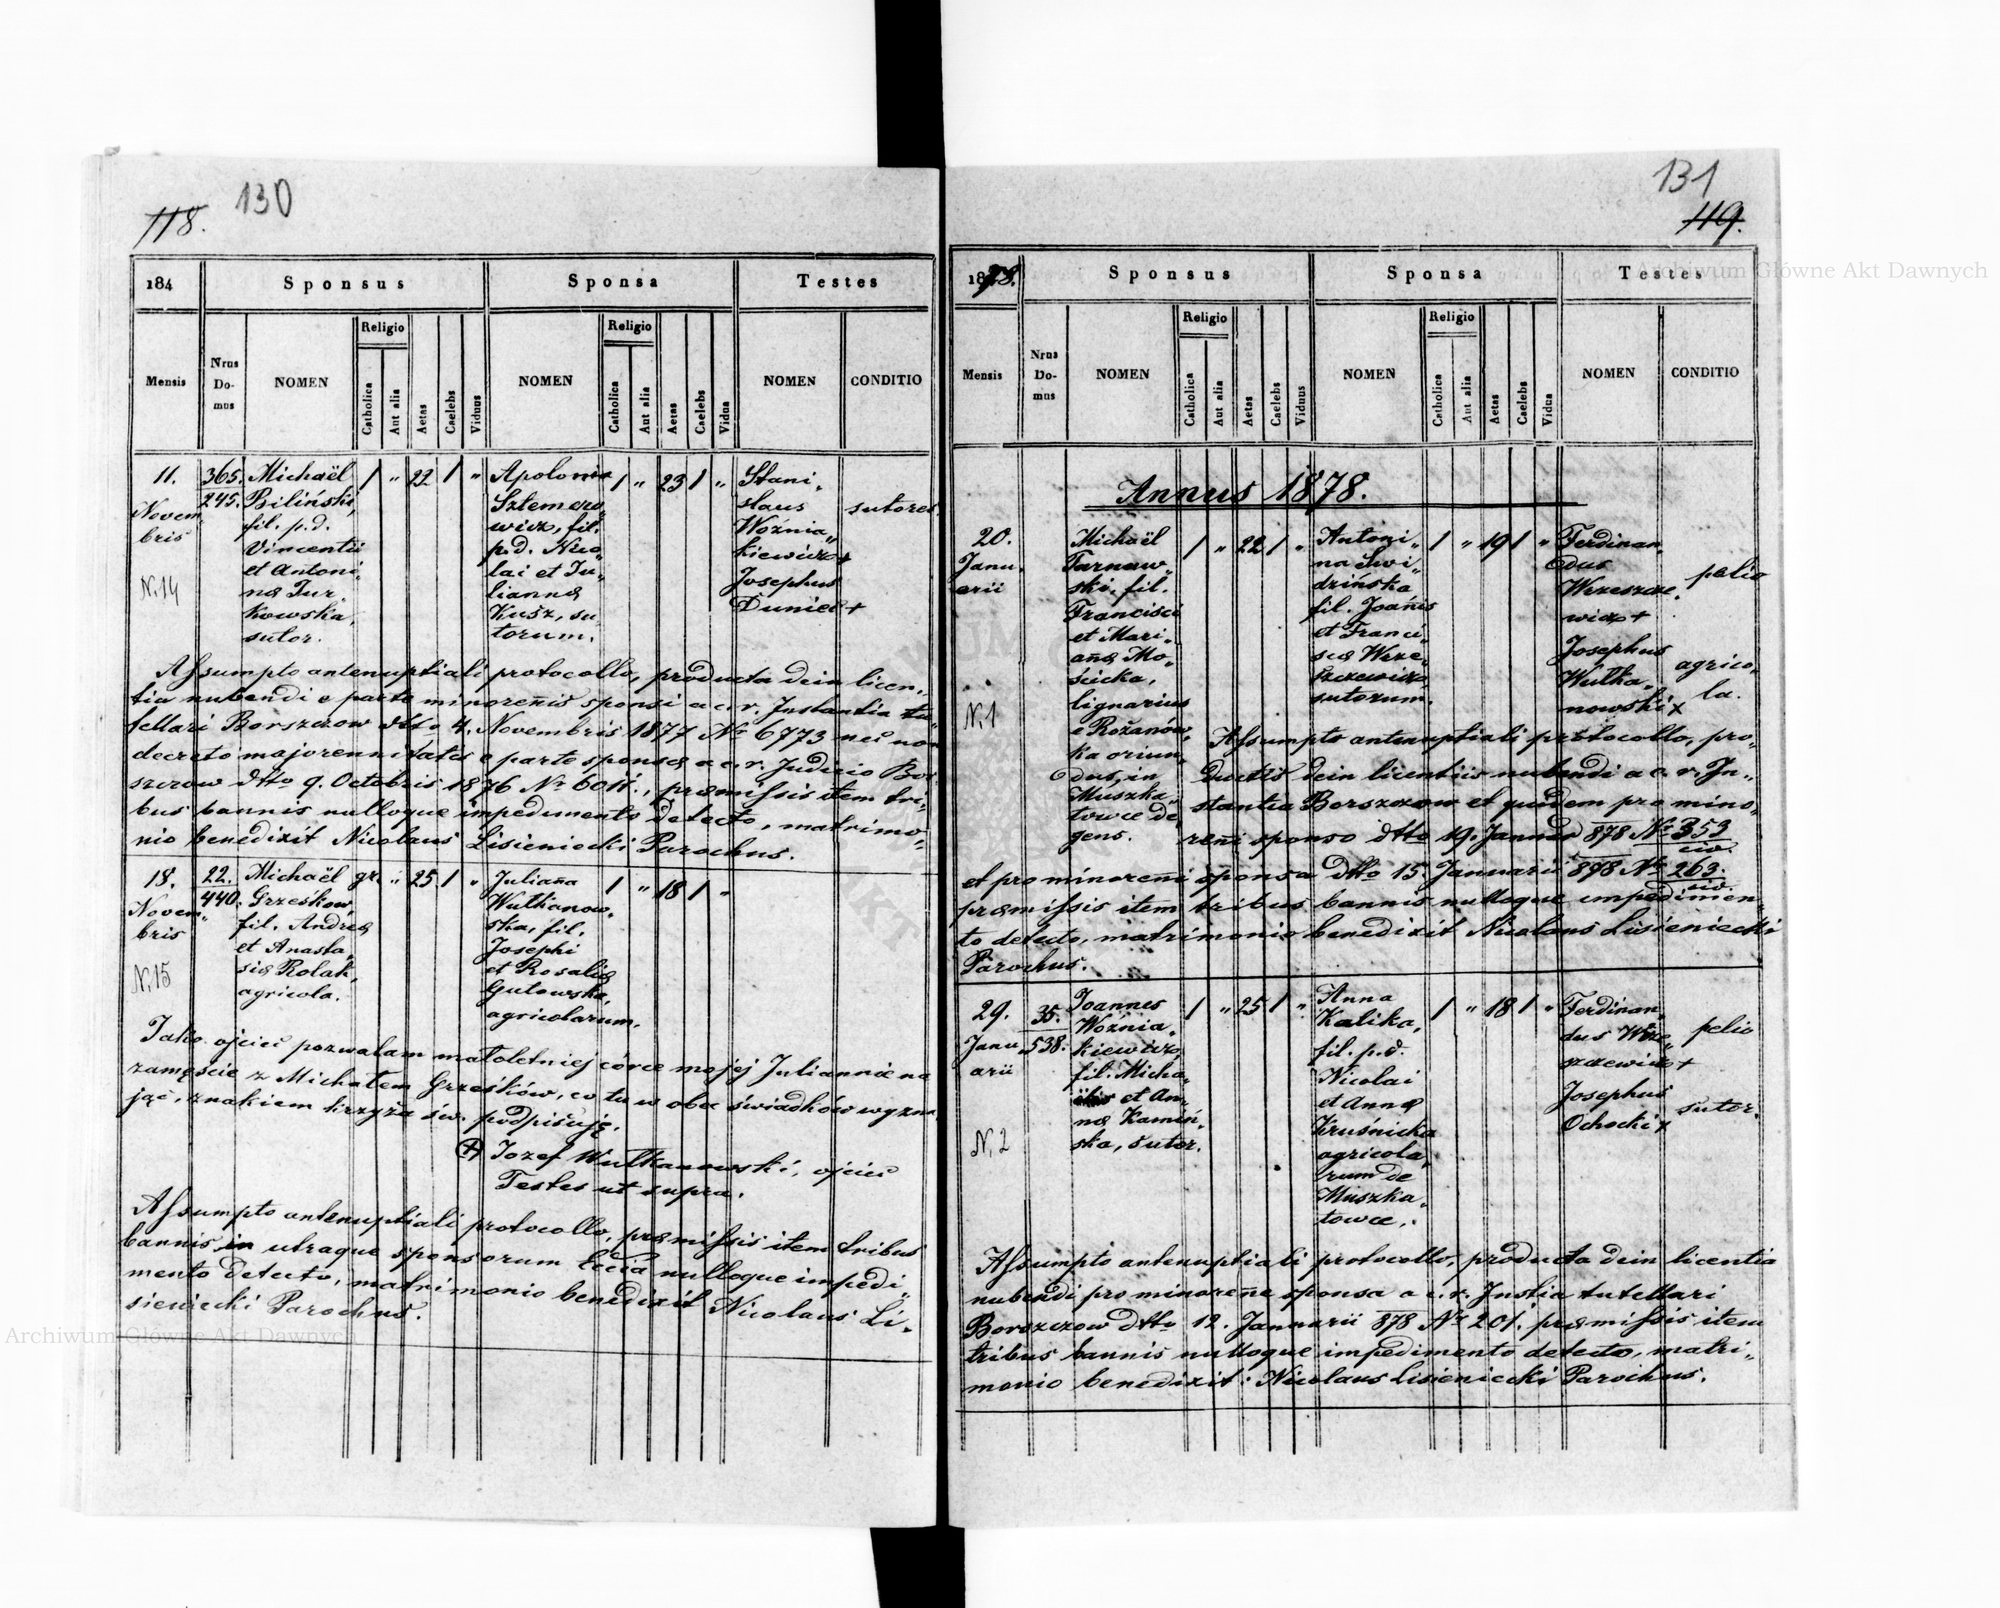 130
118.
184
Sponsus
Sponsa
Testes
Mensis
Nrus Do- mus
NOMEN
Religio
Catholica
Aut alia
Aetas
Caelebs
Viduus
NOMEN
Religio
Catholica
Aut alia
Aetas
Caelebs
Vidua
NOMEN
CONDITIO
11.
Novem„
bris
N.14
365.
245.
Michaël
Biliński,
fil. p.d.
Vincentii
et Antoni„
næ Jur„
kowska,
sutor.
1 „ 22 1 „
Apolonia
Sztemero„
wicz, fil.
p.d. Nico„
lai et Ju„
liannæ
Kusz, su„
torum.
1 „ 23 1 „
Stani„
slaus
Woźnia„
kiewicz +
Josephus
Duniec +
sutores
Assumpto antenuptiali protocollo, producta dein licen„
tia nubendi e parte minorenis sponsi a c. r. Instantia tu„
tellari Borszczow ddto 4. Novembris 1877 Nr 6773 nec non
decreto majorennitatis e parte sponsæ a c. r. Judicio Bor„
szczow ddto 9. Octobris 1876 Nr 6011., præmissis item tri„
bus bannis nulloque impedimento detecto, matrimo„
nio benedixit Nicolaus Lisieniecki Parochus.
18.
Novem„
bris
N.15
22.
440.
Michaël gr.
Grześkow,
fil. Andreæ
et Anasta„
siæ Rolak,
agricola.
„ 25 1 „
Julianna
Wulkanow„
ska, fil.
Josephi
et Rosaliæ
Gutowska,
agricolarum.
1 „ 18 1 „
Jako ojciec pozwalam małoletniej córce mojej Juliannie na
zamęście z Michałem Grześków, co tu w obec świadków wyzna„
jąc, znakiem krzyża św. podpisuję.
+ Jozef Wulkanowski, ojciec
Testes ut supra.
Assumpto antenuptiali protocollo, præmissis item tribus
bannis in utraque sponsorum ecclesia nulloque impedi„
mento detecto, matrimonio benedixit Nicolaus Li„
sieniecki Parochus.
131
119.
1878.
Sponsus
Sponsa
Testes
Mensis
Nrus Do- mus
NOMEN
Religio
Catholica
Aut alia
Aetas
Caelebs
Viduus
NOMEN
Religio
Catholica
Aut alia
Aetas
Caelebs
Vidua
NOMEN
CONDITIO
Annus 1878.
20.
Janu„
arii
N.1
Michaël
Tarnaw„
ski, fil.
Francisci
et Mari„
annæ Mo„
ścicka,
lignarius
e Rożanów„
ka oriun„
dus, in
Muszka„
towce de„
gens.
1 „ 22 1 „
Antoni„
na Swi„
dzińska
fil. Joannis
et Franci„
scæ Wrze„
szczewicz,
sutorum.
1 „ 19 1 „
Ferdinan„
dus
Wrzeszcze„
wicz +
Josephus
Wulka„
nowski x
pelio
agrico„
la.
Assumpto antenuptiali protocollo, pro„
ductis dein licentiis nubendi a c. r. In„
stantia Borszczow et quidem pro mino„
reni sponso ddto 19. Januarii 878 Nr 353
civ.
et pro minoreni sponsa ddto 15. Januarii 878 Nr 263.
civ.
præmissis item tribus bannis nulloque impedimen„
to detecto, matrimonio benedixit Nicolaus Lisieniecki
Parochus.
29.
Janu„
arii
N.2
35.
538.
Joannes
Woźnia„
kiewicz,
fil. Micha„
et An„
næ Kamiń„
ska, sutor.
1 „ 25 1 „
Anna
Kalika,
fil. p.d.
Nicolai
et Annæ
Kruśnicka
agricola„
rum de
Muszka„
towce.
1 „ 18 1 „
Ferdinan„
dus Wrze„
szczewicz +
Josephus
Ochocki x
pelio
sutor.
Assumpto antenuptiali protocollo, producta dein licentia
nubendi pro minorene sponsa a c. r. Instia tutellari
Borszczow ddto 12. Januarii 878 Nr 201. præmissis item
tribus bannis nulloque impedimento detecto, matri„
monio benedixit: Nicolaus Lisieniecki Parochus.
Archiwum Główne Akt Dawnych
Archiwum Główne Akt Dawnych